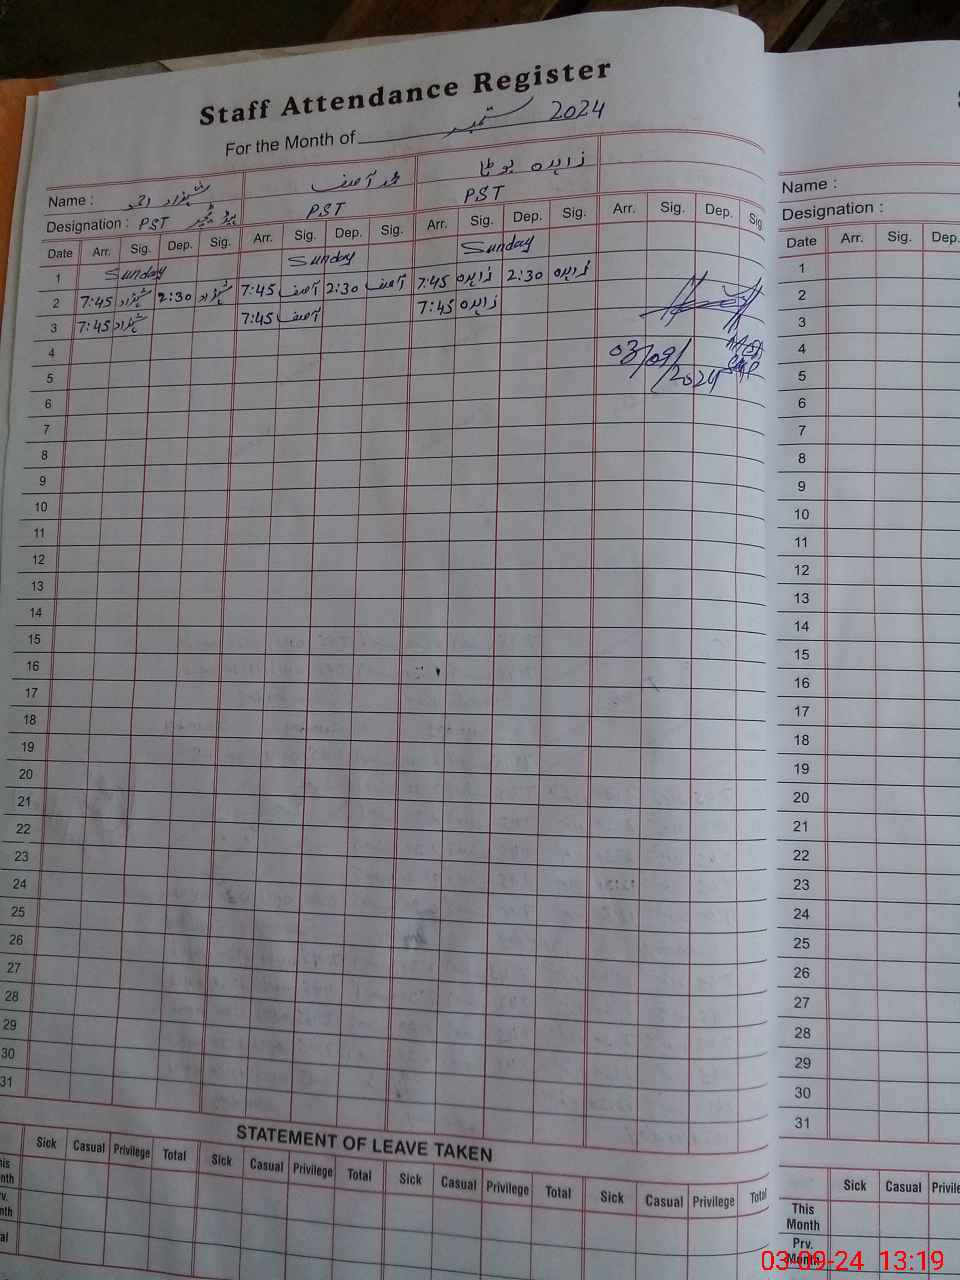 Staff Attendance Register
For the Month of ستمبر 2024
Name : شہزاد احمد محمد آصف زاہدہ بوٹا
Designation : PST ہیڈ ٹیچر PST PST
Date Arr. Sig. Dep. Sig. Arr. Sig. Dep. Sig. Arr. Sig. Dep. Sig. Arr. Sig. Dep. Sig.
1 Sunday Sunday Sunday
2 7:45 شہزاد 2:30 شہزاد 7:45 آصف 2:30 آصف 7:45 زاہدہ 2:30 زاہدہ
3 7:45 شہزاد 7:45 آصف 7:45 زاہدہ
4 03/09/2024
5
6
7
8
9
10
11
12
13
14
15
16
17
18
19
20
21
22
23
24
25
26
27
28
29
30
31
STATEMENT OF LEAVE TAKEN
Sick Casual Privilege Total Sick Casual Privilege Total Sick Casual Privilege Total Sick Casual Privilege Total
Name :
Designation :
Date Arr. Sig. Dep.
1
2
3
4
5
6
7
8
9
10
11
12
13
14
15
16
17
18
19
20
21
22
23
24
25
26
27
28
29
30
31
Sick Casual
This
Month
Prv.
Month
03-09-24 13:19